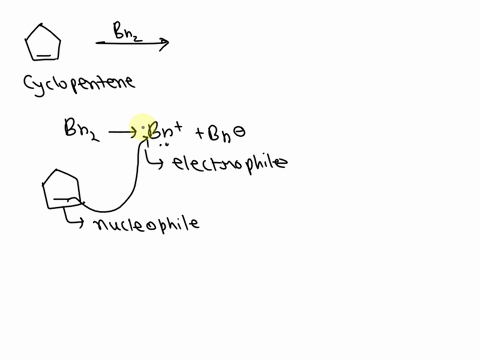 Br₂
Cyclopentene
Br₂ → :Br⁺ + Br⊖
↳ electrophile
↳ nucleophile